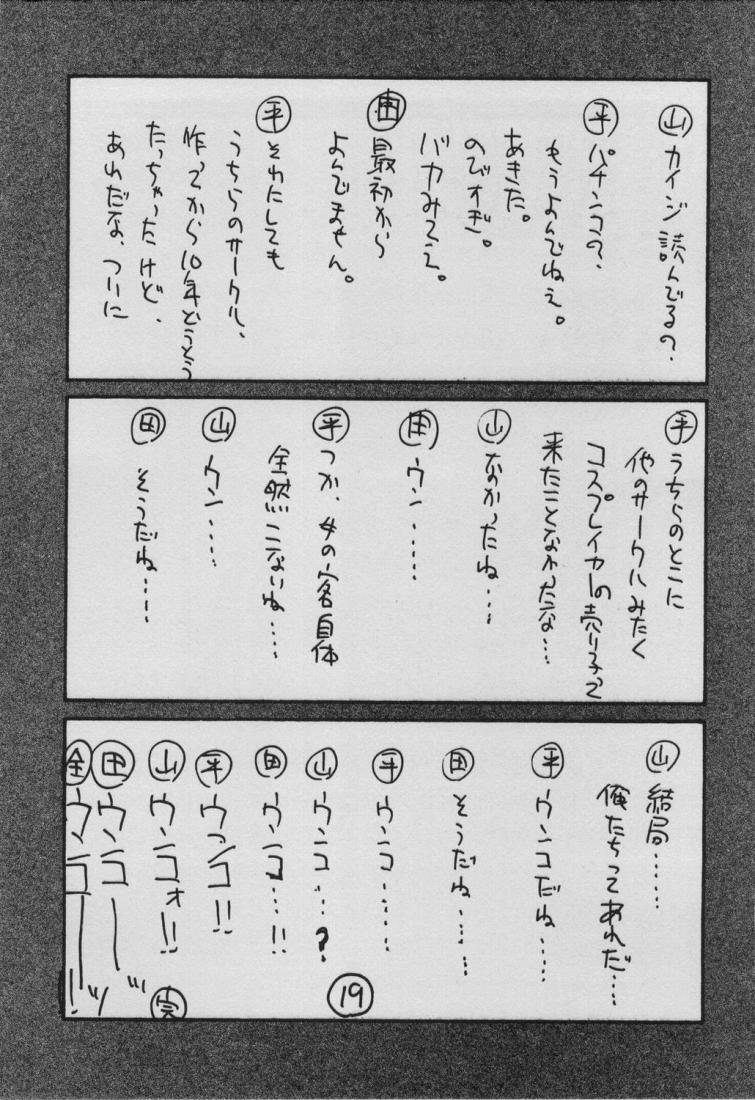 山 カイジ 読んでるの?
平 パチンコの?
もうよんでねえ。
あきた。
のびすぎ。
バカみてえ。
田 最初から
よんでません。
平 それにしても
うちらのサークル、
作ってから10年どうとう
たっちゃったけど、
あれだな、ついに
平 うちらのとこに
他のサークルみたく
コスプレイヤーの売り子って
来たことなかったな…
山 なかったね…
田 ウン……
平 つか、女の客自体
全然こないね……
山 ウン……
田 そうだね……
山 結局……
俺たちってあれだ…
平 ウンコだね……
田 そうだね……
平 ウンコ……
山 ウンコ…?
田 ウンコ…!!
平 ウンコ!!
山 ウンコォ!!
田 ウンコーッ!!
全 ウンコーッ!!
完
19